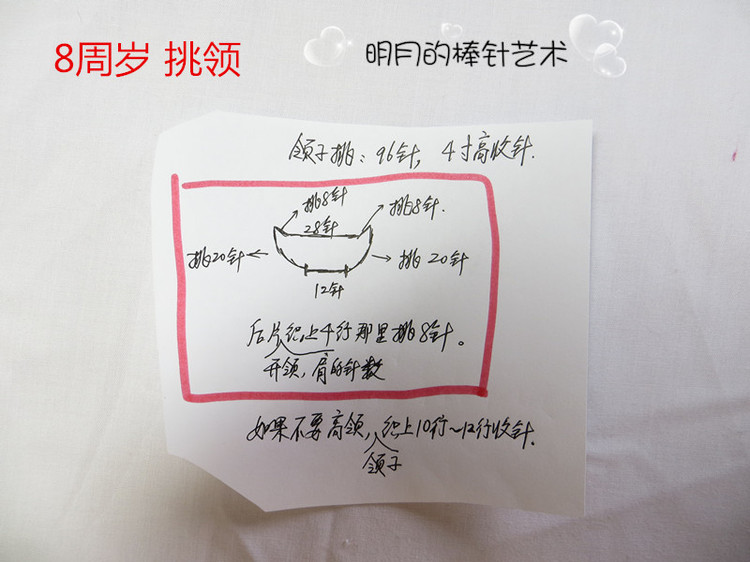 8周岁 挑领
明月的棒针艺术
领子挑：96针，4寸高收针.
挑8针
挑8针.
28针
挑20针
挑 20针
12针
后片织上4行那里挑8针。
开领，肩的针数
如果不要高领，织上10行~12行收针.
领子